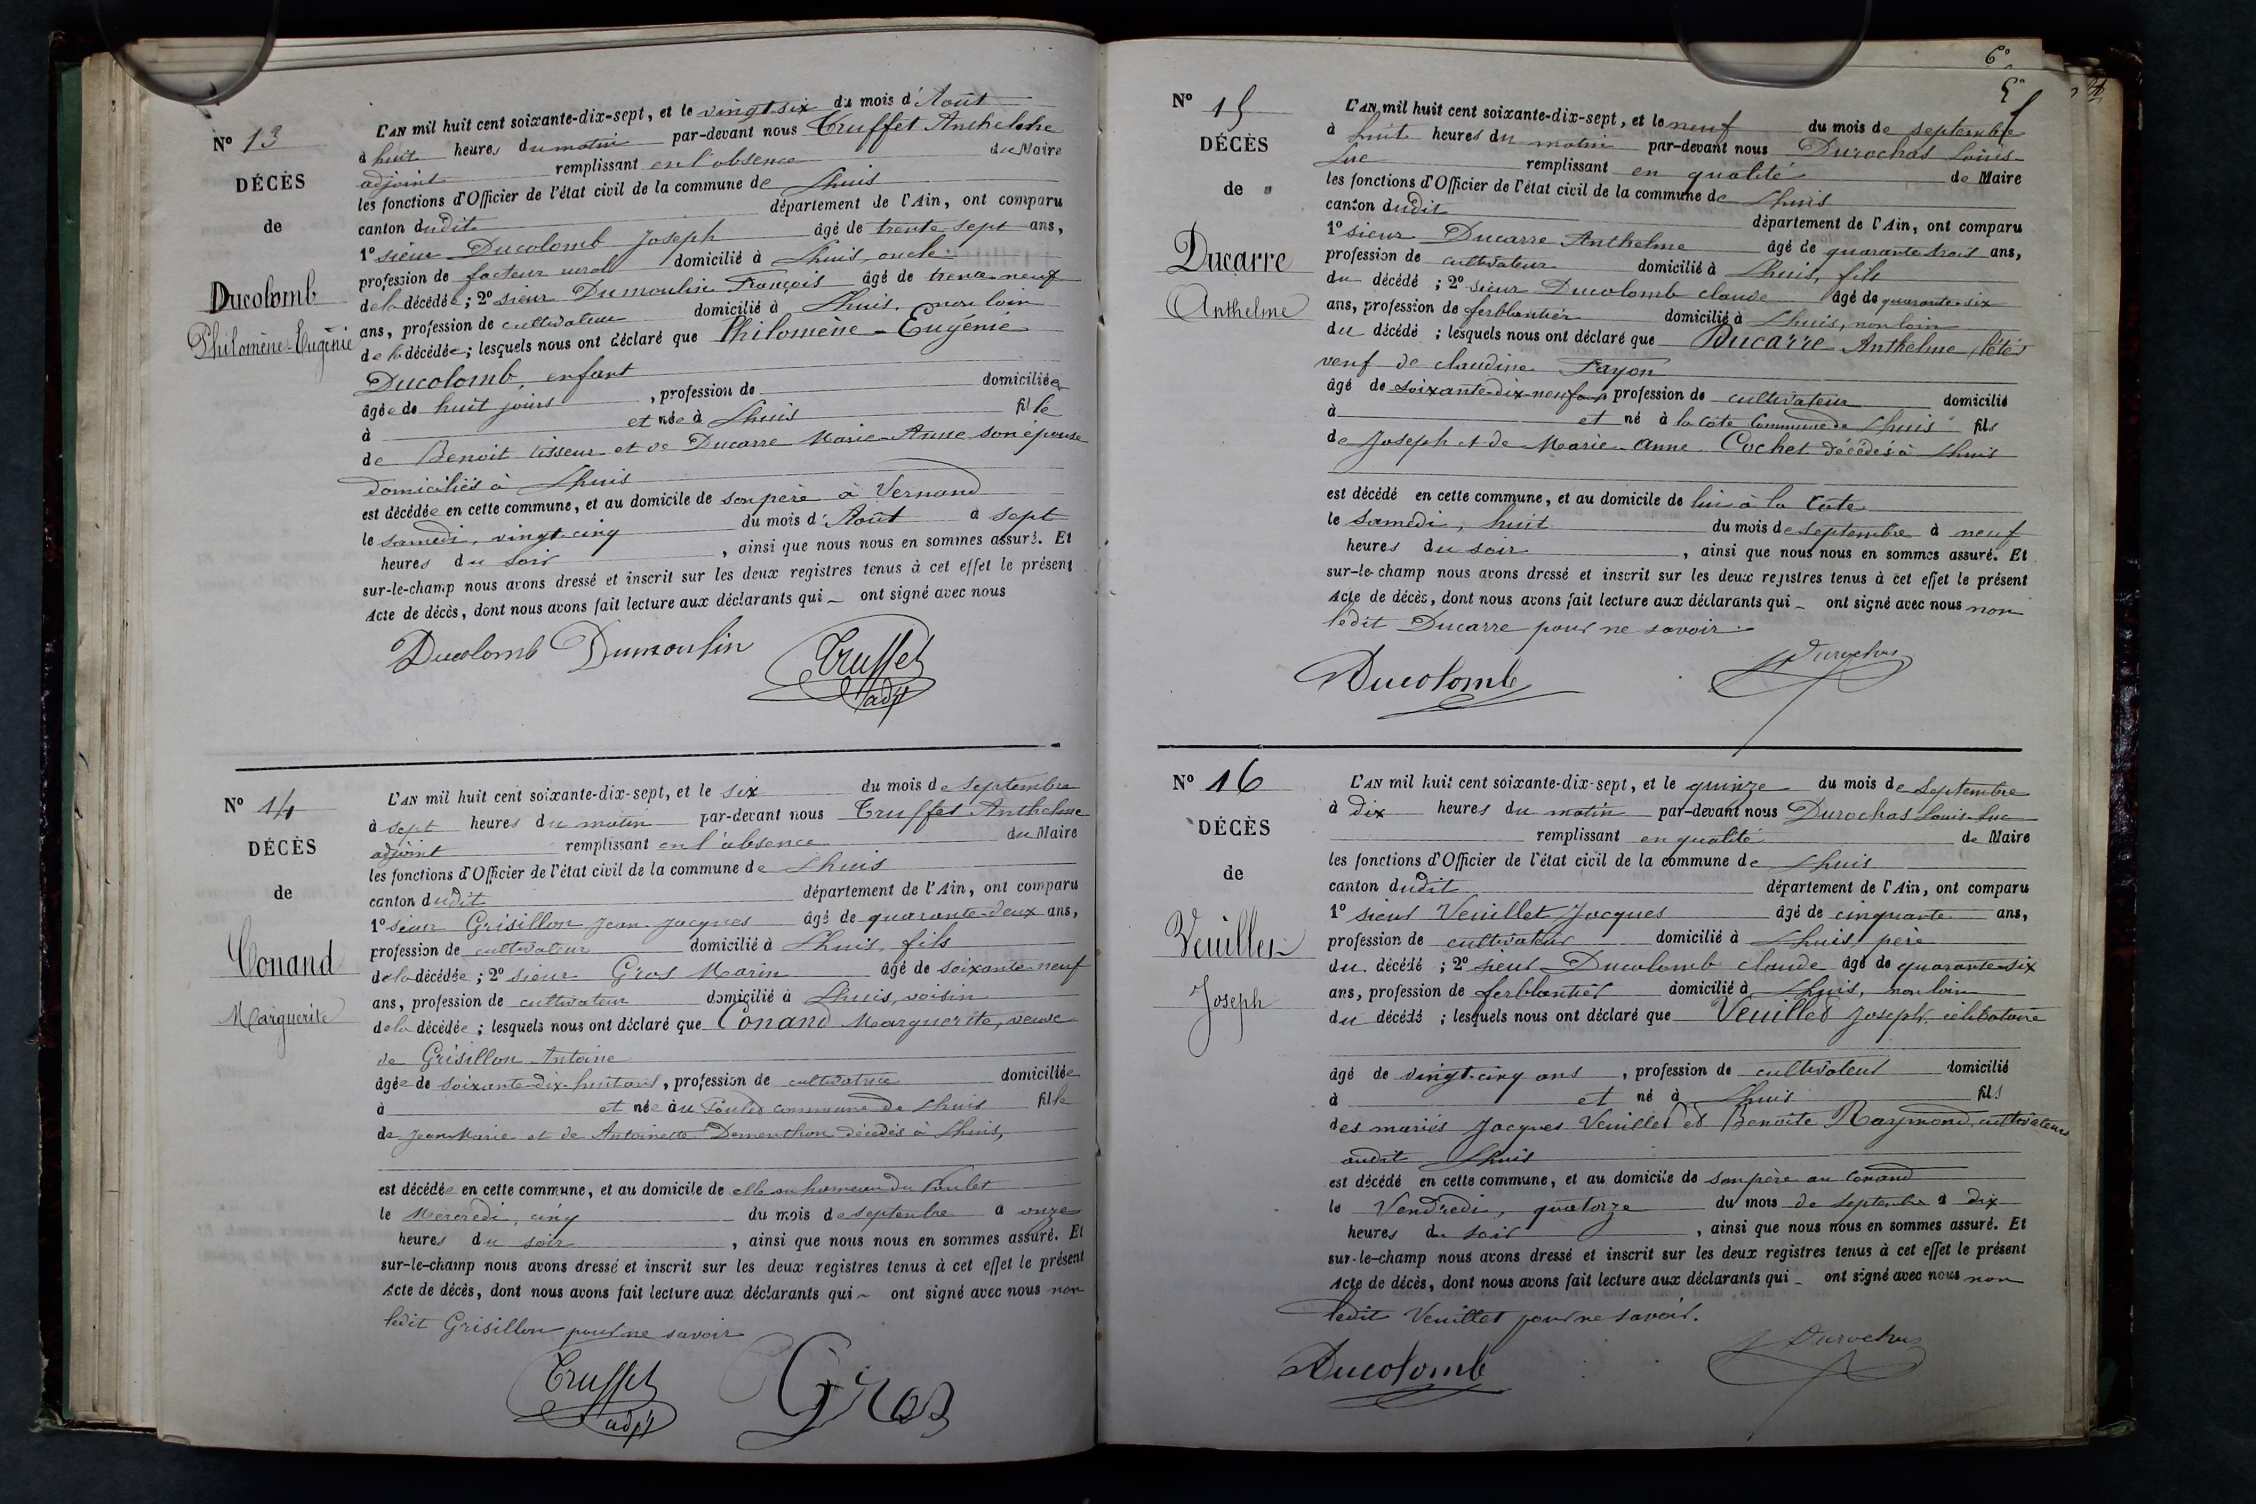 Nº 13
DÉCÈS
de
Ducolomb
Philomène-Eugénie
L'AN mil huit cent soixante-dix-sept, et le vingt-six du mois d'Août
à huit heures du matin par-devant nous Truffet Anthelme
adjoint remplissant en l'absence du Maire
les fonctions d'Officier de l'état civil de la commune de Lhuis
canton dudit département de l'Ain, ont comparu
1º sieur Ducolomb Joseph âgé de trente sept ans,
profession de facteur rural domicilié à Lhuis, oncle
de la décédée ; 2º sieur Dumoulin François âgé de trente-neuf
ans, profession de cultivateur domicilié à Lhuis, non loin
de la décédée ; lesquels nous ont déclaré que Philomène-Eugénie
Ducolomb, enfant
âgée de huit jours , profession de domiciliée
à et née à Lhuis fille
de Benoit tisseur et de Ducarre Marie-Anne son épouse
domiciliés à Lhuis
est décédée en cette commune, et au domicile de son père à Vernand
le samedi, vingt-cinq du mois d'Août à sept
heures du soir , ainsi que nous nous en sommes assuré. Et
sur-le-champ nous avons dressé et inscrit sur les deux registres tenus à cet effet le présent
Acte de décès, dont nous avons fait lecture aux déclarants qui ont signé avec nous
Ducolomb Dumoulin Truffet
adjt
Nº 14
DÉCÈS
de
Conand
Marguerite
L'AN mil huit cent soixante-dix-sept, et le six du mois de septembre
à sept heures du matin par-devant nous Truffet Anthelme
adjoint remplissant en l'absence du Maire
les fonctions d'Officier de l'état civil de la commune de Lhuis
canton dudit département de l'Ain, ont comparu
1º sieur Grisillon Jean-Jacques âgé de quarante-deux ans,
profession de cultivateur domicilié à Lhuis, fils
de la décédée ; 2º sieur Gros Marin âgé de soixante-neuf
ans, profession de cultivateur domicilié à Lhuis, voisin
de la décédée ; lesquels nous ont déclaré que Conand Marguerite, veuve
de Grisillon Antoine
âgée de soixante-dix-huit ans, profession de cultivatrice domiciliée
à et née au Poulet commune de Lhuis fille
de Jean Marie et de Antoinette Dementhon décédés à Lhuis,
est décédée en cette commune, et au domicile de elle au hameau du Poulet
le Mercredi, cinq du mois de septembre à onze
heures du soir , ainsi que nous nous en sommes assuré. Et
sur-le-champ nous avons dressé et inscrit sur les deux registres tenus à cet effet le présent
Acte de décès, dont nous avons fait lecture aux déclarants qui ont signé avec nous non
ledit Grisillon pour ne savoir
Truffet Gros
adjt
6º
5º
Nº 15
DÉCÈS
de
Ducarre
Anthelme
L'AN mil huit cent soixante-dix-sept, et le neuf du mois de septembre
à huit heures du matin par-devant nous Durochas Louis-
Luc remplissant en qualité de Maire
les fonctions d'Officier de l'état civil de la commune de Lhuis
canton dudit département de l'Ain, ont comparu
1º sieur Ducarre Anthelme âgé de quarante trois ans,
profession de cultivateur domicilié à Lhuis, fils
du décédé ; 2º sieur Ducolomb claude âgé de quarante-six
ans, profession de ferblantier domicilié à Lhuis, non loin
du décédé ; lesquels nous ont déclaré que Ducarre Anthelme
veuf de claudine Fayon
âgé de soixante-dix-neuf ans profession de cultivateur domicilié
à et né à la côte Commune de Lhuis fils
de Joseph et de Marie-Anne Cochet décédés à Lhuis
est décédé en cette commune, et au domicile de lui à la Côte
le samedi, huit du mois de septembre à neuf
heures du soir , ainsi que nous nous en sommes assuré. Et
sur-le-champ nous avons dressé et inscrit sur les deux registres tenus à cet effet le présent
Acte de décès, dont nous avons fait lecture aux déclarants qui ont signé avec nous non
ledit Ducarre pour ne savoir.
Ducolomb Durochas
Nº 16
DÉCÈS
de
Veuillet
Joseph
L'AN mil huit cent soixante-dix-sept, et le quinze du mois de septembre
à dix heures du matin par-devant nous Durochas Louis-Luc
remplissant en qualité de Maire
les fonctions d'Officier de l'état civil de la commune de Lhuis
canton dudit département de l'Ain, ont comparu
1º sieur Veuillet Jacques âgé de cinquante ans,
profession de cultivateur domicilié à Lhuis, père
du décédé ; 2º sieur Ducolomb claude âgé de quarante-six
ans, profession de ferblantier domicilié à Lhuis, non loin
du décédé ; lesquels nous ont déclaré que Veuillet Joseph, célibataire
âgé de vingt-cinq ans , profession de cultivateur domicilié
à et né à Lhuis fils
des mariés Jacques Veuillet et Benoîte Raymond, cultivateurs
audit Lhuis
est décédé en cette commune, et au domicile de son père au Conand
le Vendredi, quatorze du mois de septembre à dix
heures du soir , ainsi que nous nous en sommes assuré. Et
sur-le-champ nous avons dressé et inscrit sur les deux registres tenus à cet effet le présent
Acte de décès, dont nous avons fait lecture aux déclarants qui ont signé avec nous non
ledit Veuillet pour ne savoir.
Ducolomb Durochas